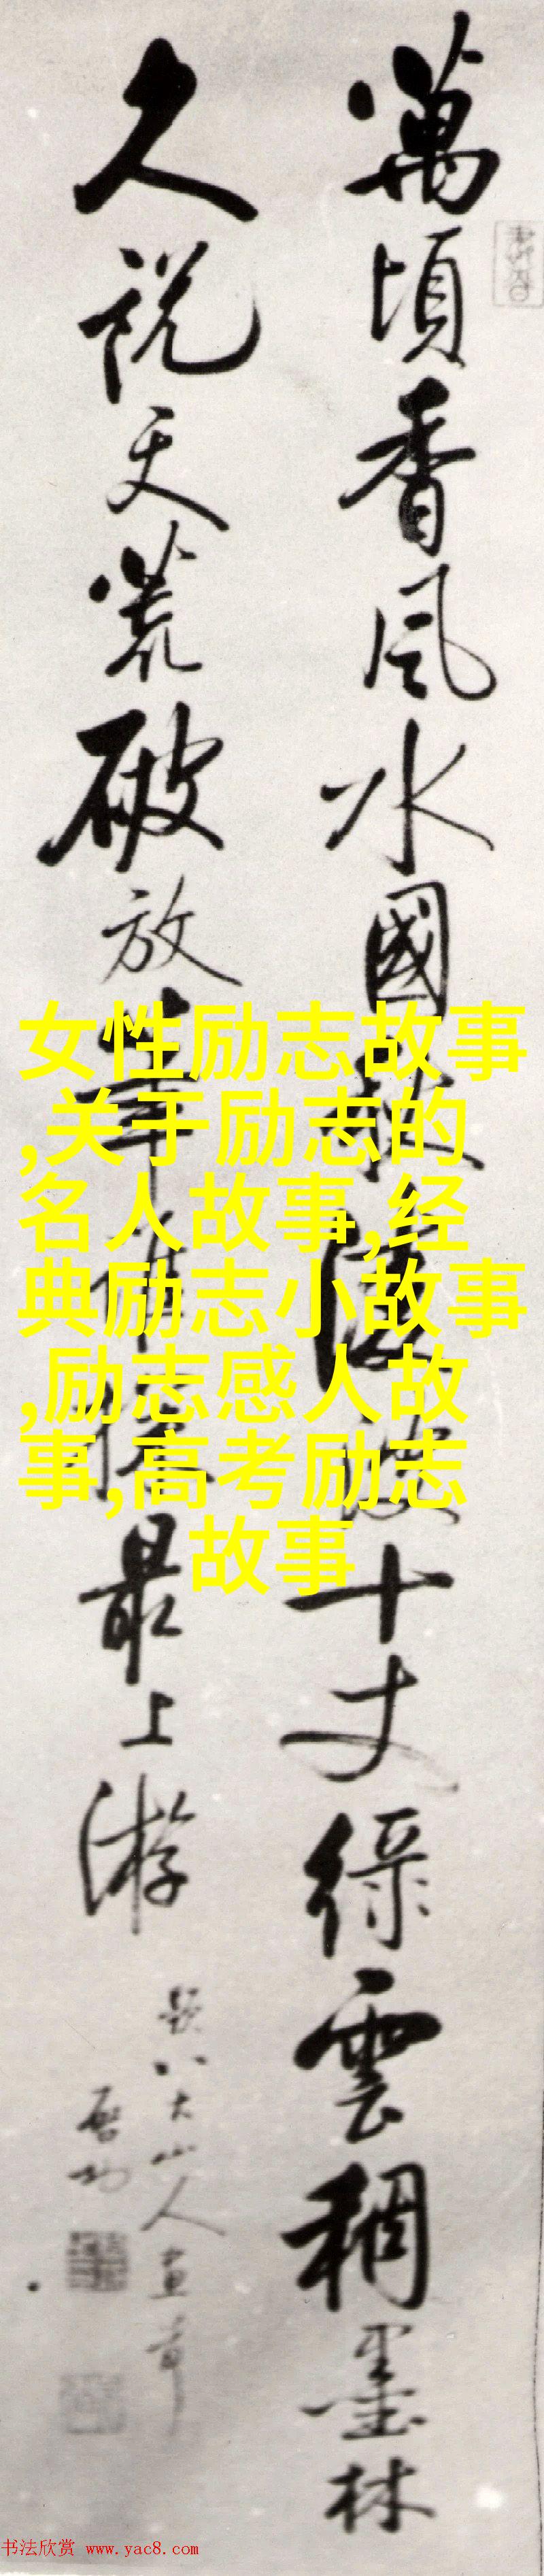 萬頃香風水國秋
十丈綠雲稠墨林
久說天荒破放筆
最上游
題八大山人畫
啓功
女性励志故事
,关于励志的
名人故事,经
典励志小故事
,励志感人故
事,高考励志
故事
书法欣赏 www.yac8.com